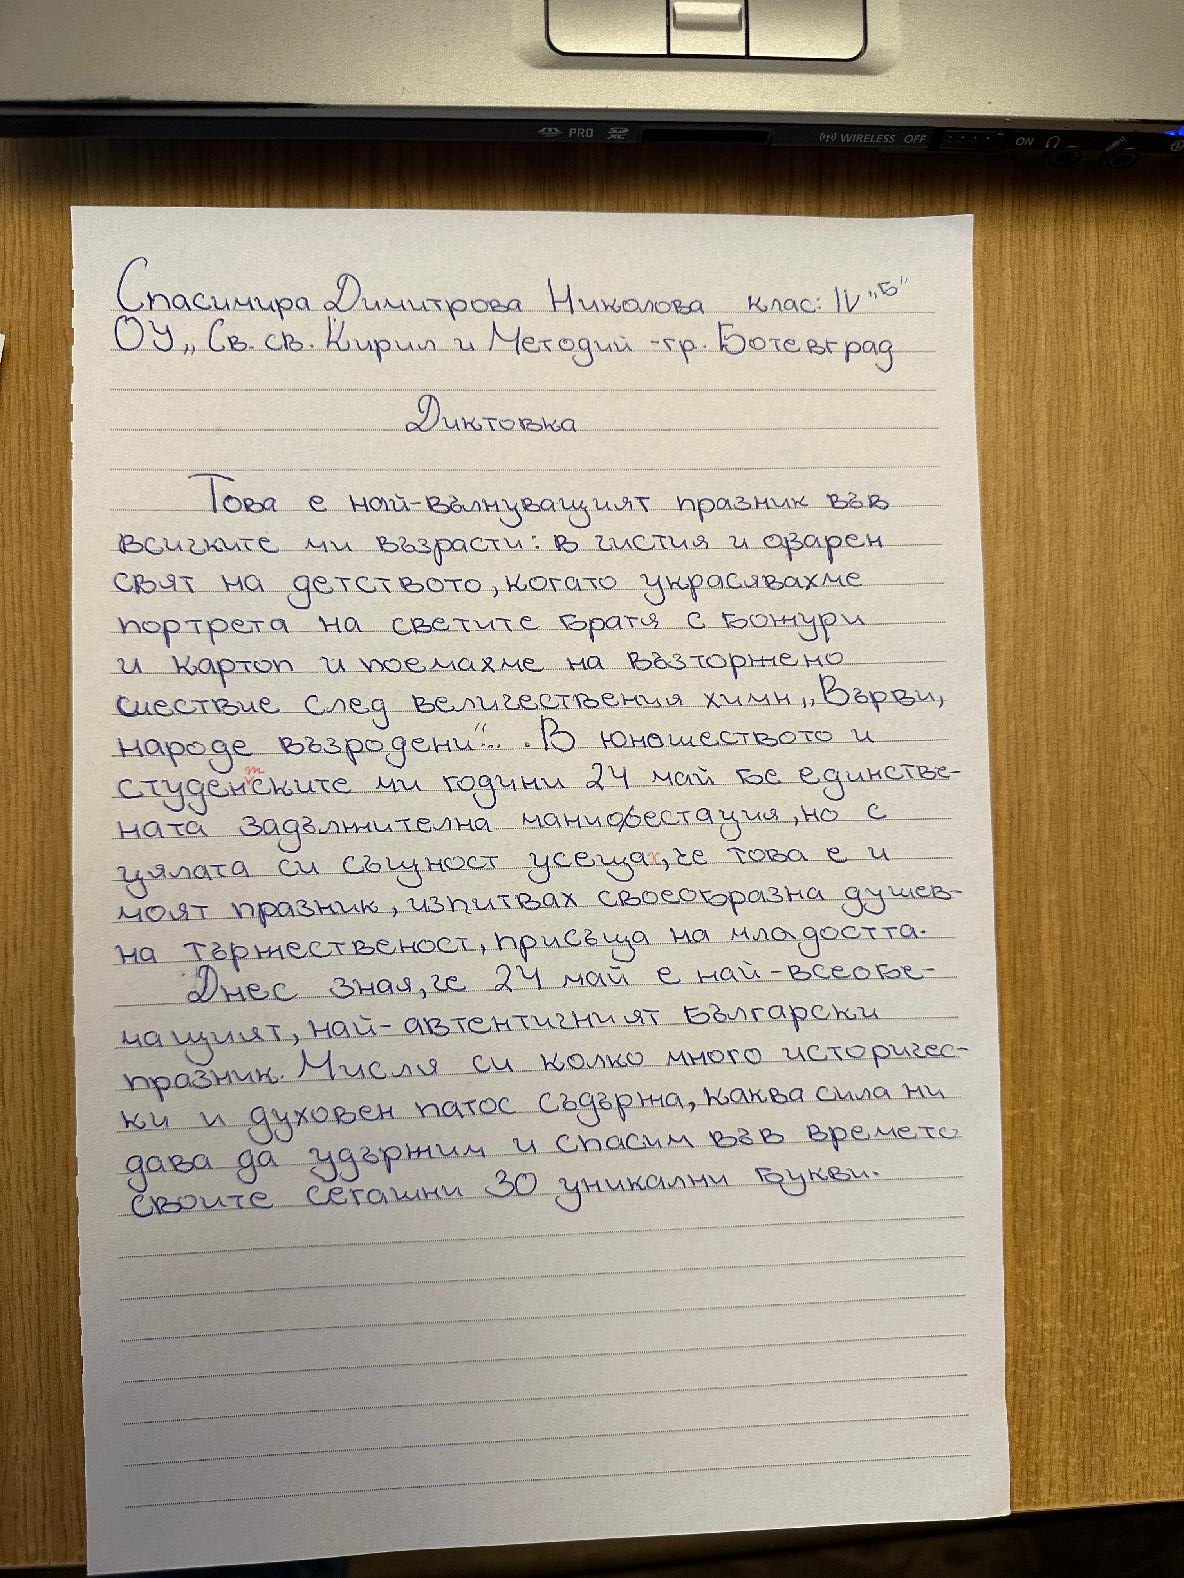 PRO SD XC WIRELESS OFF ON
Спасимира Димитрова Николова клас: IV "Б"
ОУ „Св. св. Кирил и Методий -гр. Ботевград
Диктовка
Това е най-вълнуващият празник във
всичките ми възрасти: в чистия и озарен
свят на детството, когато украсявахме
портрета на светите братя с божури
и картоп и поемахме на възторжено
шествие след величествения химн „Върви,
народе възродени“... В юношеството и
студентските ми години 24 май бе единстве-
ната задължителна манифестация, но с
цялата си същност усещах, че това е и
моят празник, изпитвах своеобразна душев-
на тържественост, присъща на младостта.
Днес зная, че 24 май е най-всеобе-
мащият, най-автентичният български
празник. Мисля си колко много историчес-
ки и духовен патос съдържа, каква сила ни
дава да удържим и спасим във времето
своите сегашни 30 уникални букви.